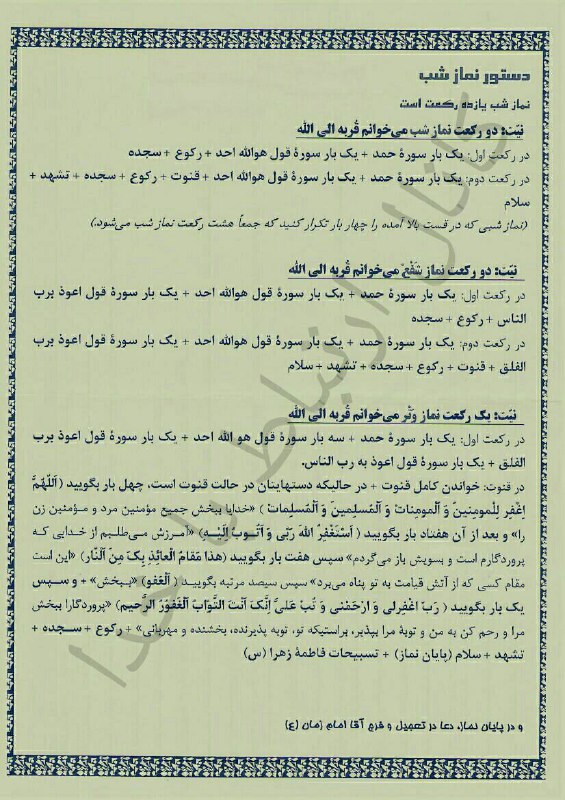 دستور نماز شب
نماز شب یازده رکعت است
نیّت: دو رکعت نماز شب می‌خوانم قربه الی الله
در رکعت اول: یک بار سورهٔ حمد + یک بار سورهٔ قول هوالله احد + رکوع + سجده
در رکعت دوم: یک بار سورهٔ حمد + یک بار سورهٔ قول هوالله احد + قنوت + رکوع + سجده + تشهد +
سلام
(نماز شبی که در قست بالا آمده را چهار بار تکرار کنید که جمعاً هشت رکعت نماز شب می‌شود.)
نیّت: دو رکعت نماز شَفْعْ می‌خوانم قُربه الی الله
در رکعت اول: یک بار سورهٔ حمد + یک بار سورهٔ قول هوالله احد + یک بار سورهٔ قول اعوذ برب
الناس + رکوع + سجده
در رکعت دوم: یک بار سورهٔ حمد + یک بار سورهٔ قول هوالله احد + یک بار سورهٔ قول اعوذ برب
الفلق + قنوت + رکوع + سجده + تشهد + سلام
نیّت: یک رکعت نماز وَتْر می‌خوانم قُربه الی الله
در رکعت اول: یک بار سورهٔ حمد + سه بار سورهٔ قول هو الله احد + یک بار سورهٔ قول اعوذ برب
الفلق + یک بار سورهٔ قول اعوذ به رب الناس.
در قنوت: خواندن کامل قنوت + در حالیکه دستهایتان در حالت قنوت است، چهل بار بگویید (اَللّهُمَّ
اِغْفِر لِلْمومِنینَ وَ اَلْمومِنات وَ اَلْمُسلِمینَ وَ اَلْمُسلِمات) «خدایا ببخش جمیع مؤمنین مرد و مؤمنین زن
را» و بعد از آن هفتاد بار بگویید (اَسْتَغْفِرُ اللهَ رَبّی وَ اَتُـوبُ اِلَیْـهِ) «آمرزش می‌طلبم از خدایی که
پروردگارم است و بسویش باز می‌گردم» سپس هفت بار بگویید (هذا مَقامُ الْعائِذِ بِکَ مِنَ النّارِ) «این است
مقام کسی که از آتش قیامت به تو پناه می‌برد» سپس سیصد مرتبه بگویید (اَلْعَفْو) «ببخش» + و سپس
یک بار بگویید (رَبِّ اغْفِرلی وَ ارْحَمْنی وَ تُبْ عَلَیَّ اِنَّکَ اَنْتَ التَّوّابُ الْغَفُورُ الرَّحیم) «پروردگارا ببخش
مرا و رحم کن به من و توبهٔ مرا بپذیر، براستیکه تو، توبه پذیرنده، بخشنده و مهربانی» + رکوع + سجده +
تشهد + سلام (پایان نماز) + تسبیحات فاطمهٔ زهرا (س)
و در پایان نماز، دعا در تعجیل و فرج آقا امام زمان (ع)
کانال ارتباط با خدا